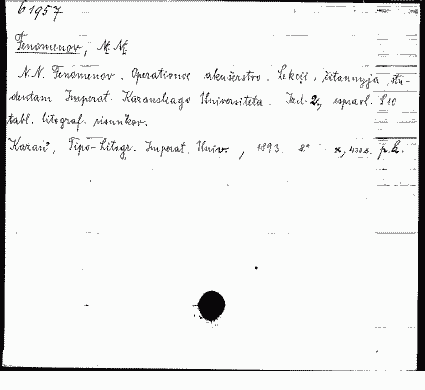 61957
Fenomenov, N. N.
N.N. Fenomenov. Operativnoe akušerstvo. Lekcii, čitannyja stu-
dentam Imperat. Kazanskago Universiteta. Izd. 2, ispravl. S 20
tabl. litograf. risunkov.
Kazan', Tipo-Litogr. Imperat. Univ., 1893. 8° X, 430 s.